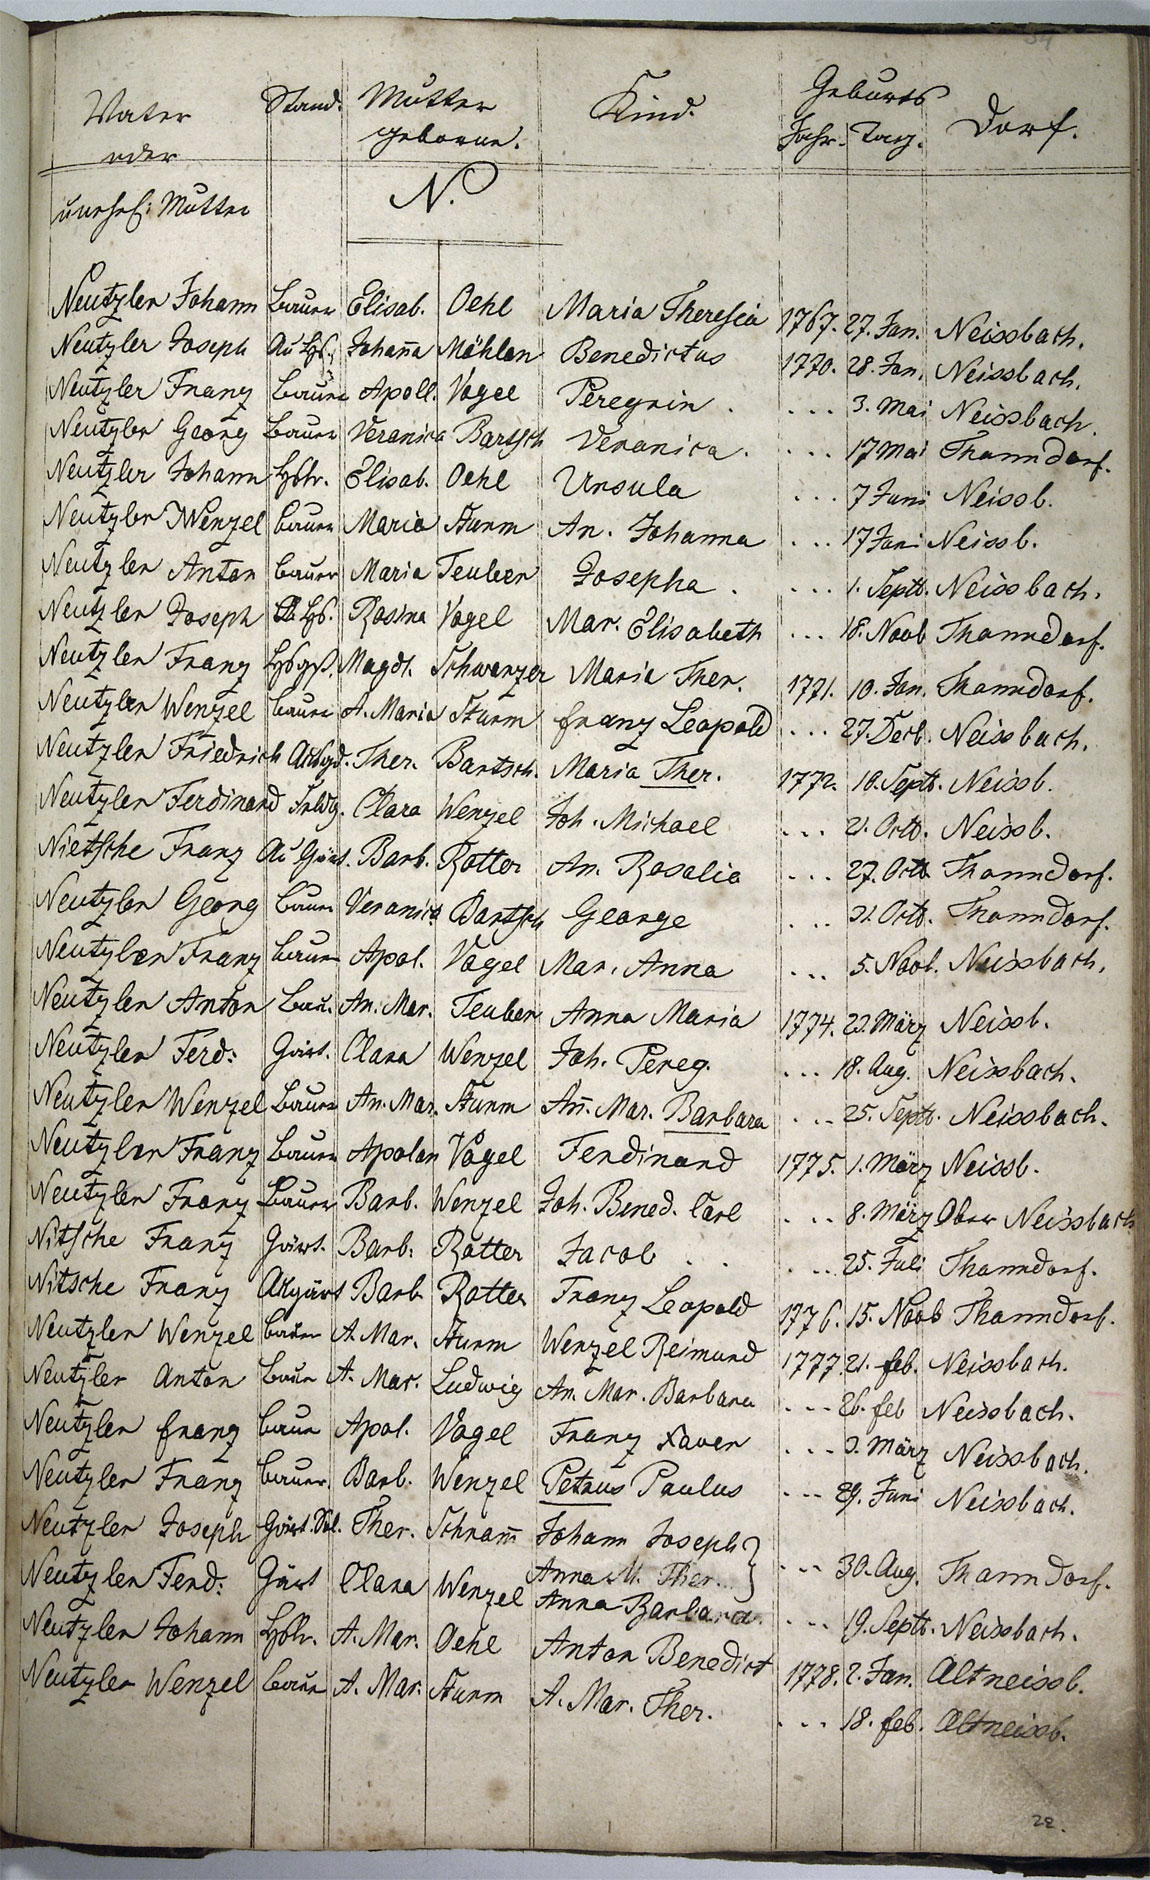 Vater Stand. Mutter Kind. Geburts Dorf.
oder geborne. Jahr. Tag.
unehel: Mutter N.
Neutzler Johann Bauer Elisab. Oehl Maria Theresia 1767. 27. Jan. Neissbach.
Neutzler Joseph Johana Möhlan Benedictus 1770. 28. Jan. Neissbach.
Neutzler Franz Bauer Apoll. Vogel Peregrin . ... 3. Mai Neissbach.
Neutzler Georg Bauer Veronica Bartsch Veronica. ... 17 Mai Thanndorf.
Neutzler Johann Elisab. Oehl Ursula ... 7 Juni Neissb.
Neutzler Wenzel Bauer Maria Sturm An. Johanna ... 17 Juni Neissb.
Neutzler Anton Bauer Maria Teuber Josepha . ... 1. Septb. Neissbach.
Neutzler Joseph Rosina Vogel Mar. Elisabeth ... 18. Novb Thanndorf.
Neutzler Franz Magdl. Schwarzer Maria Ther. 1771. 10. Jan. Thanndorf.
Neutzler Wenzel Bauer A. Maria Sturm Franz Leopold ... 27. Decb. Neissbach.
Neutzler Friedrich Ther. Bartsch. Maria Ther. 1772. 18. Septb. Neissb.
Neutzler Ferdinand Clara Wenzel Joh. Michael ... 21. Octb. Neissb.
Nietsche Franz Barb. Rotter An. Rosalia ... 27. Octb Thanndorf.
Neutzler Georg Bauer Veronica Bartsch George ... 31. Octb. Thanndorf.
Neutzler Franz Bauer Apol. Vogel Mar. Anna ... 5. Novb. Neissbach.
Neutzler Anton Bau. An. Mar. Teuber Anna Maria 1774. 23. März Neissb.
Neutzler Ferd: Gärt. Clara Wenzel Joh. Pereg. ... 18. Aug. Neissbach.
Neutzler Wenzel Bauer An. Mar. Sturm An. Mar. Barbara ... 25. Septb. Neissbach.
Neutzler Franz Bauer Apolon Vogel Ferdinand 1775. 1. März Neissb.
Neutzler Franz Bauer Barb. Wenzel Joh. Bened. Carl ... 8. März Ober Neissbach
Nitsche Franz Gärt. Barb. Rotter Jacob . . ... 25. Juli Thanndorf.
Nitsche Franz Barb. Rotter Franz Leopold 1776. 15. Novb Thanndorf.
Neutzler Wenzel Bauer A. Mar. Sturm Wenzel Reimund 1777. 21. feb. Neissbach.
Neutzler Anton Bauer A. Mar. Ludwig An. Mar. Barbara ... 26. feb Neissbach.
Neutzler Franz Bauer Apol. Vogel Franz Xaver ... 3. März Neissbach.
Neutzler Franz Bauer. Barb. Wenzel Petrus Paulus ... 29. Juni Neissbach.
Neutzler Joseph Ther. Schram Johann Joseph }
Anna M. Ther. ... 30. Aug. Thanndorf.
Neutzler Ferd: Gärt Clara Wenzel Anna Barbara. ... 19. Septb. Neissbach.
Neutzler Johann A. Mar. Oehl Anton Benedict 1778. 2. Jan. Altneissb.
Neutzler Wenzel Bauer A. Mar. Sturm A. Mar. Ther. ... 18. feb. Altneissb.
22.